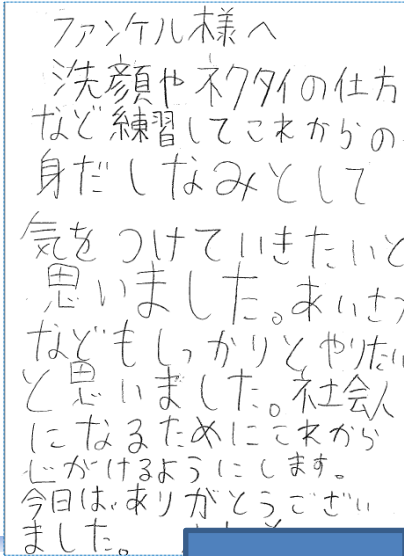 ファンケル様へ
洗顔やネクタイの仕方
など練習してこれからの
身だしなみとして
気をつけていきたいと
思いました。あいさつ
などもしっかりとやりたい
と思いました。社会人
になるためにこれから
心がけるようにします。
今日は、ありがとうござい
ました。